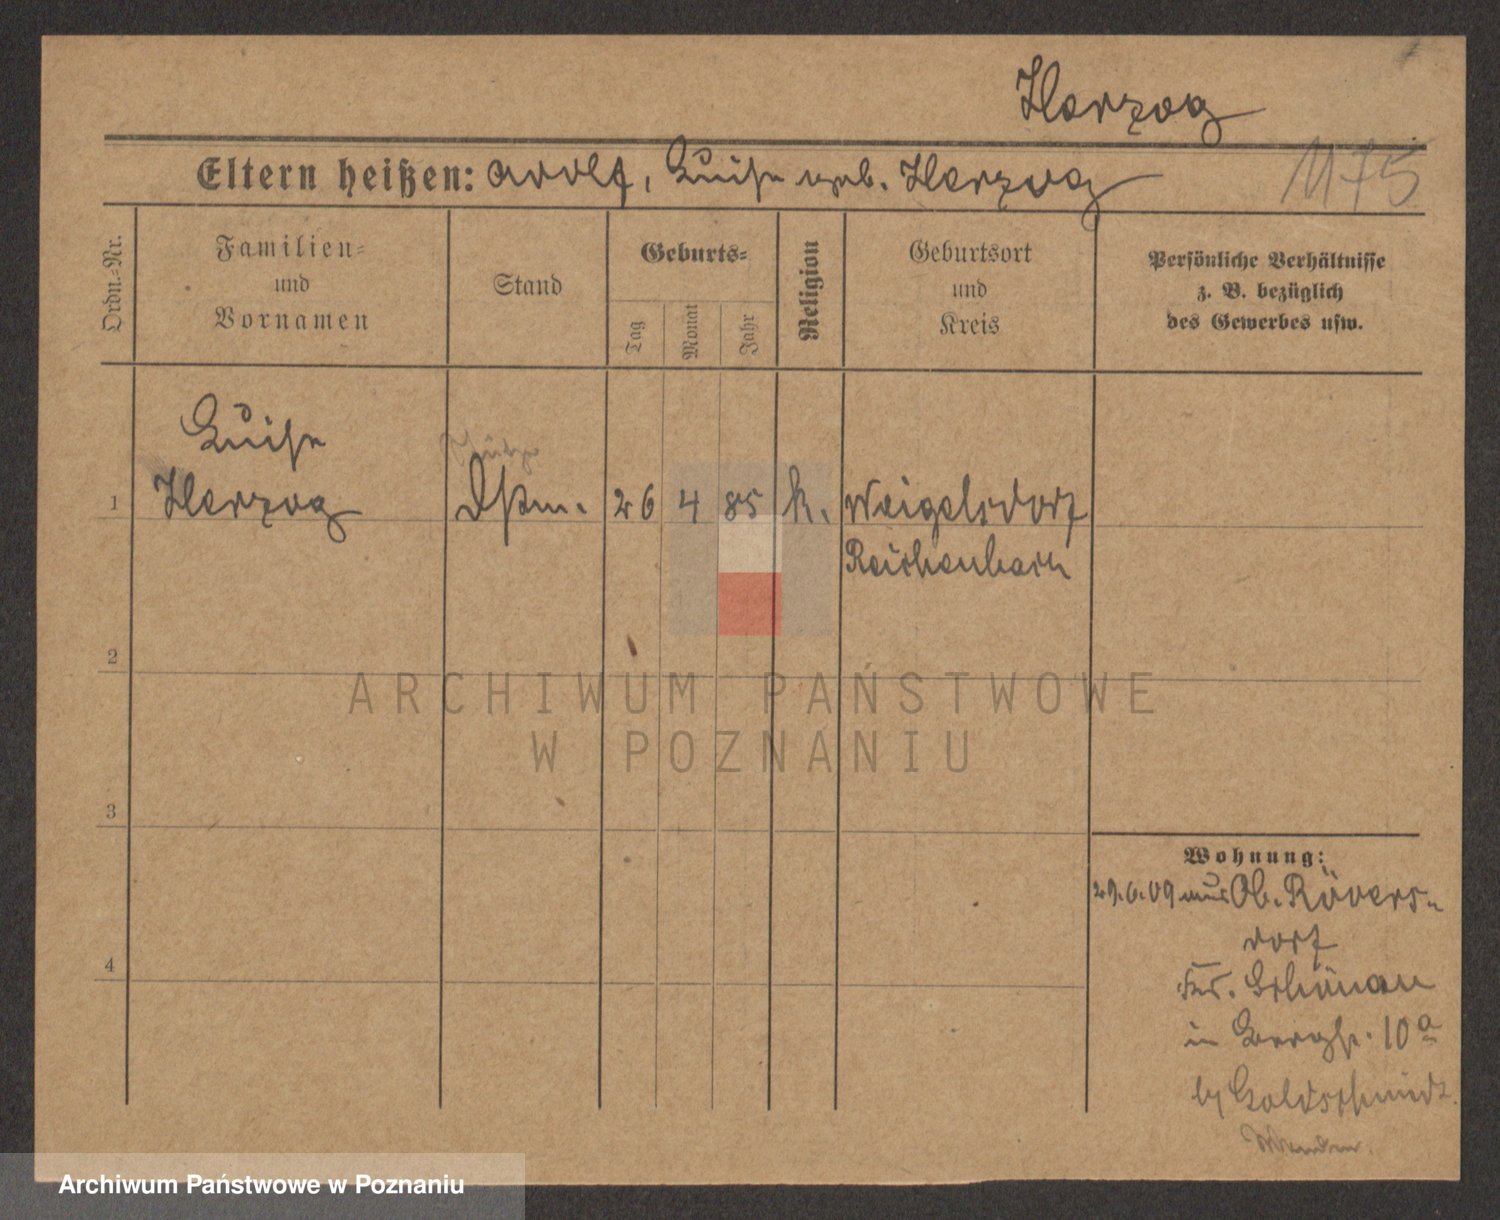 Herzog
Eltern heißen: Adolf, Luise geb. Herzog
1175
Ordn.=Nr.
Familien=
und
Vornamen
Stand
Geburts=
Tag
Monat
Jahr
Religion
Geburtsort
und
Kreis
Persönliche Verhältnisse
z. B. bezüglich
des Gewerbes usw.
Luise
Stütze
1 Herzog 26 4 85 k. Weigelsdorf
Reichenbach
2
ARCHIWUM PAŃSTWOWE
W POZNANIU
3
Wohnung:
29.6.09 aus Ob. Rövers-
dorf
4
Krs. Schönau
in Bergstr. 10a
by Goldschmidt.
Wenden.
Archiwum Państwowe w Poznaniu